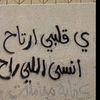 ي قلبي ارتاح
أنسى اللي راح